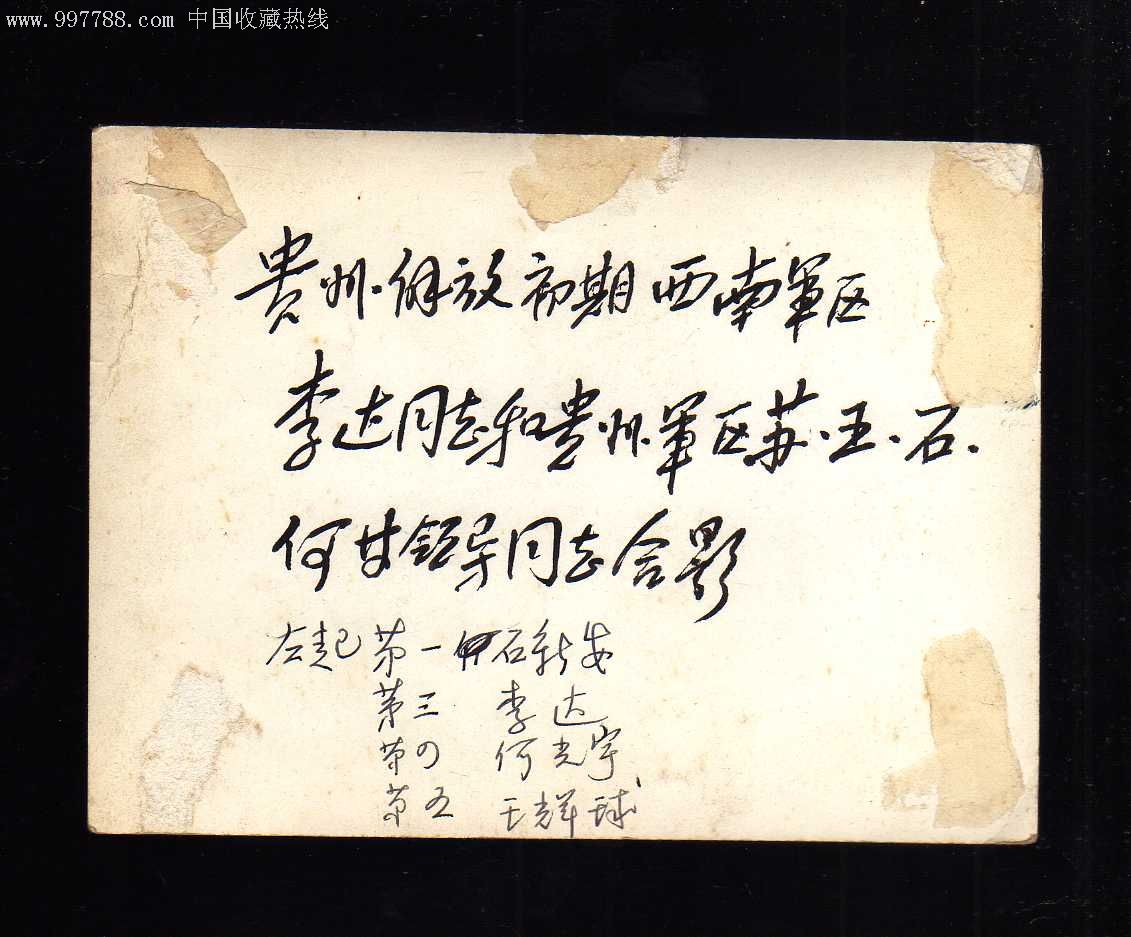 www.997788.com 中国收藏热线
貴州解放初期西南軍区
李达同志和貴州軍区苏.王.石.
何甘領导同志合影
左起 第一 石新安
第三 李达
第四 何光宇
第五 王辉球